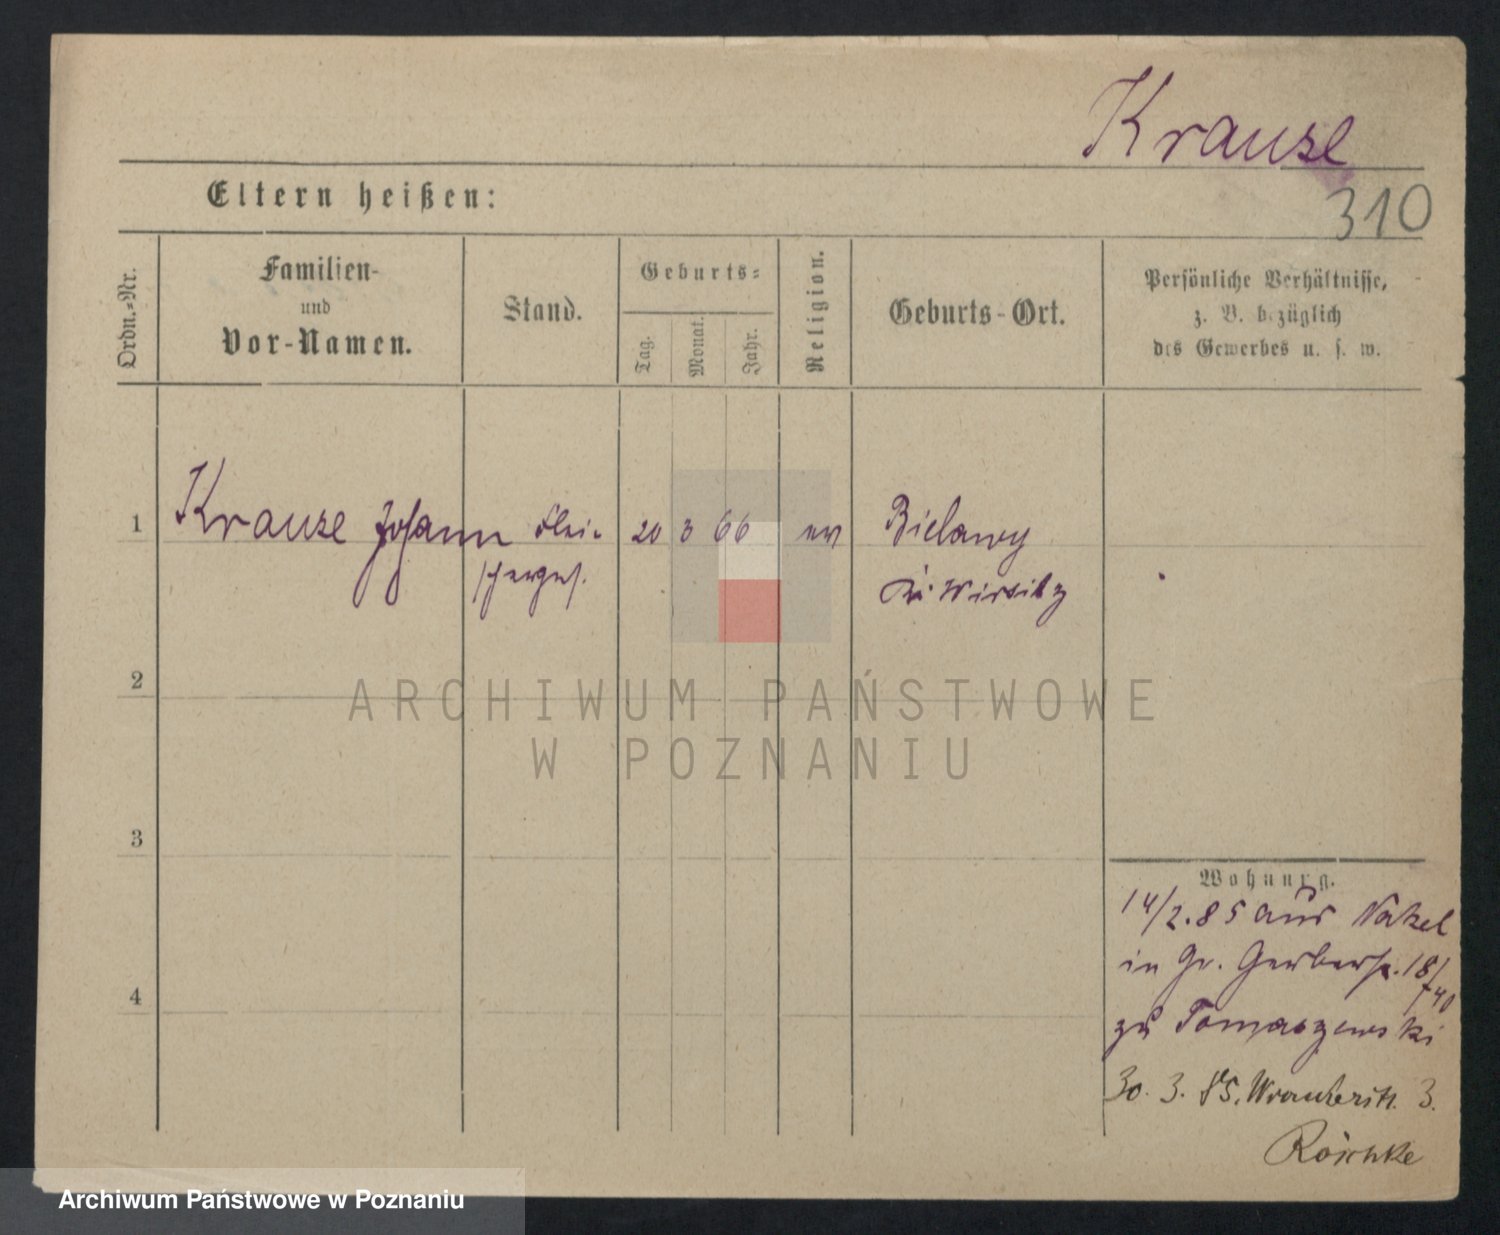 Krause
310
Eltern heißen:
Ordn.-Nr.
Familien-
und
Vor-Namen.
Stand.
Geburts-
Tag.
Monat.
Jahr.
Religion.
Geburts-Ort.
Persönliche Verhältnisse,
z. B. bezüglich
des Gewerbes u. s. w.
1
Krause Johann Flei- 20 3 66 ev Bielawy
scherges. Kr. Wirsitz
2
ARCHIWUM PAŃSTWOWE
W POZNANIU
3
Wohnung.
14/2.85 aus Nakel
in Gr. Gerberstr. 18/
40
4
zu Tomaszewski
30. 3. 85. Wronkerstr. 3.
Röschke
Archiwum Państwowe w Poznaniu